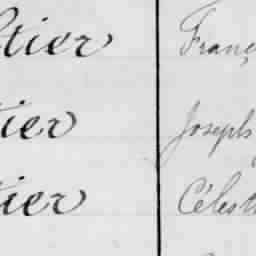 tier Franç
tier Joseph
tier Célest